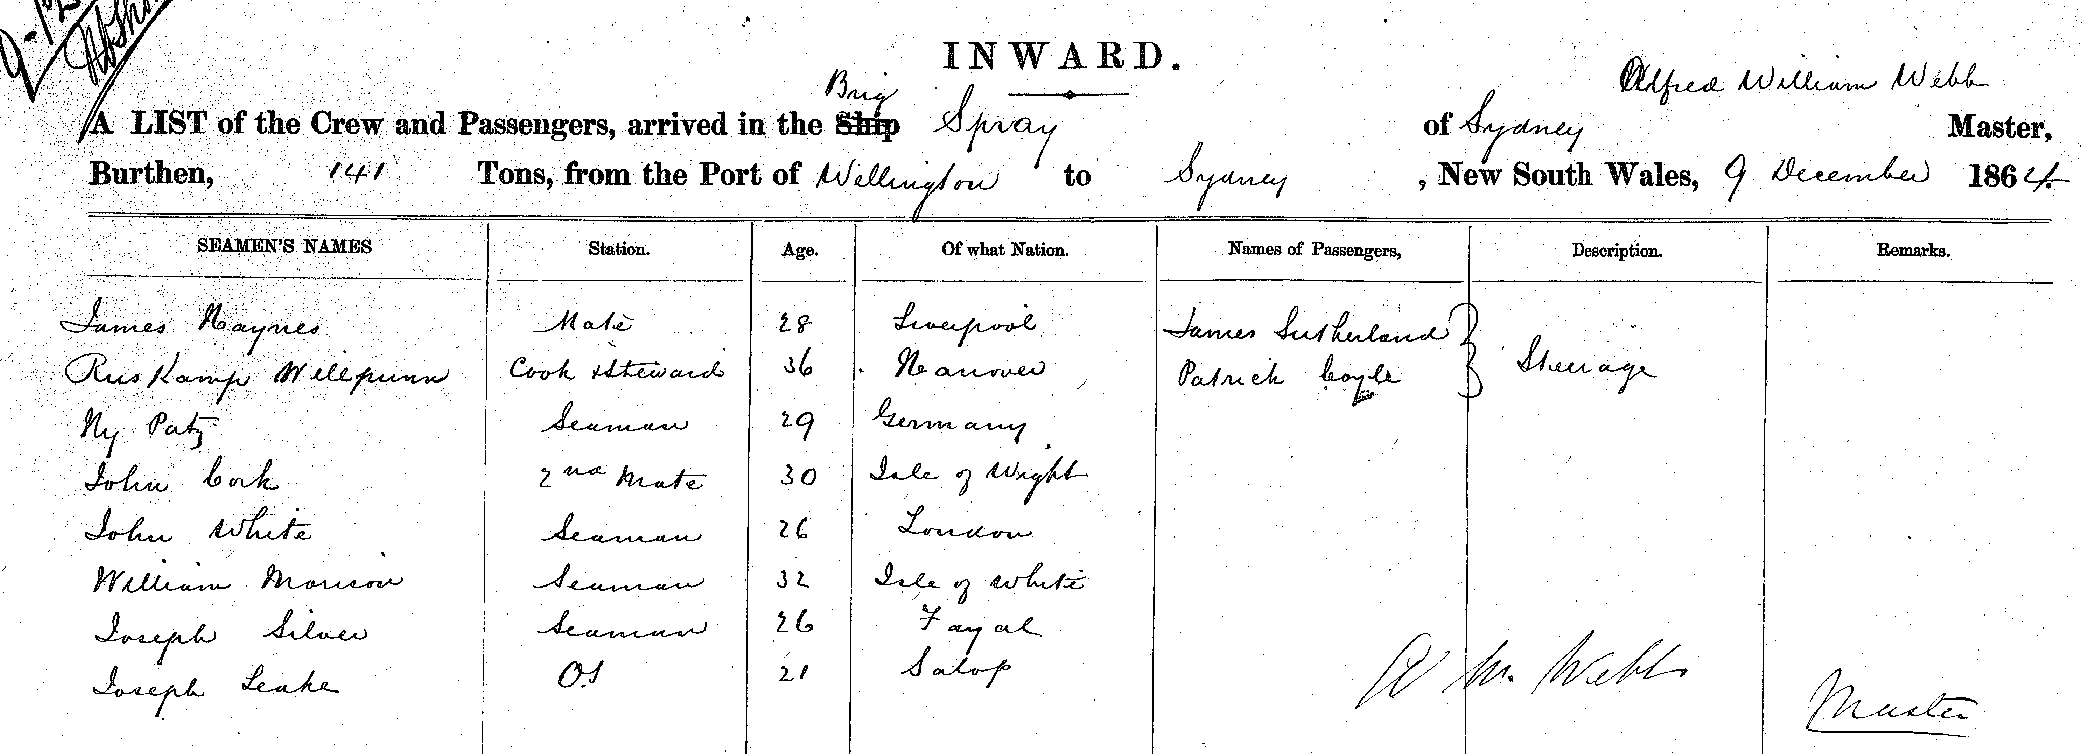 INWARD.
Brig
Alfred William Webb
A LIST of the Crew and Passengers, arrived in the Ship Spray of Sydney Master,
Burthen, 141 Tons, from the Port of Wellington to Sydney , New South Wales, 9 December 1864.
SEAMEN'S NAMES Station. Age. Of what Nation. Names of Passengers, Description. Remarks.
James Haynes Mate 28 Liverpool James Sutherland
Ruskamp Cook & Steward 36 Hanover Patrick Coyle Steerage
Ny Patz Seaman 29 Germany
John Cork 2nd Mate 30 Isle of Wight
John White Seaman 26 London
William Morison Seaman 32 Isle of White
Joseph Silver Seaman 26 Fayal
Joseph Leake OS 21 Salop
A W. Webb
Master